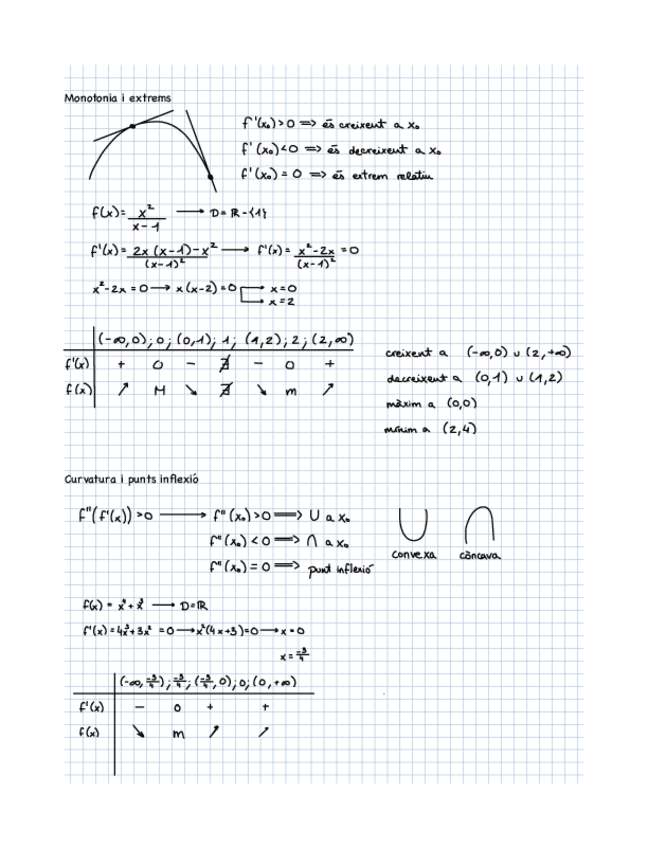 Monotonia i extrems
f'(x₀)>0 => és creixent a x₀
f'(x₀)<0 => és decreixent a x₀
f'(x₀)=0 => és extrem relatiu
f(x)= x²/(x-1) → D=ℝ-{1}
f'(x)= (2x(x-1)-x²)/(x-1)² → f'(x)= (x²-2x)/(x-1)² =0
x²-2x=0 → x(x-2)=0 → x=0
→ x=2
(-∞,0); 0; (0,1); 1; (1,2); 2; (2,∞)
f'(x) + 0 - ∄ - 0 +
f(x) ↗ M ↘ ∄ ↘ m ↗
creixent a (-∞,0) ∪ (2,+∞)
decreixent a (0,1) ∪ (1,2)
màxim a (0,0)
mínim a (2,4)
Curvatura i punts inflexió
f''(f'(x))>0 → f''(x₀)>0 => ∪ a x₀
f''(x₀)<0 => ∩ a x₀
f''(x₀)=0 => punt inflexió
convexa còncava
f(x)= x⁴+x³ → D=ℝ
f'(x)=4x³+3x²=0 → x²(4x+3)=0 → x=0
x=-3/4
(-∞,-3/4); -3/4; (-3/4,0); 0; (0,+∞)
f'(x) - 0 + +
f(x) ↘ m ↗ ↗